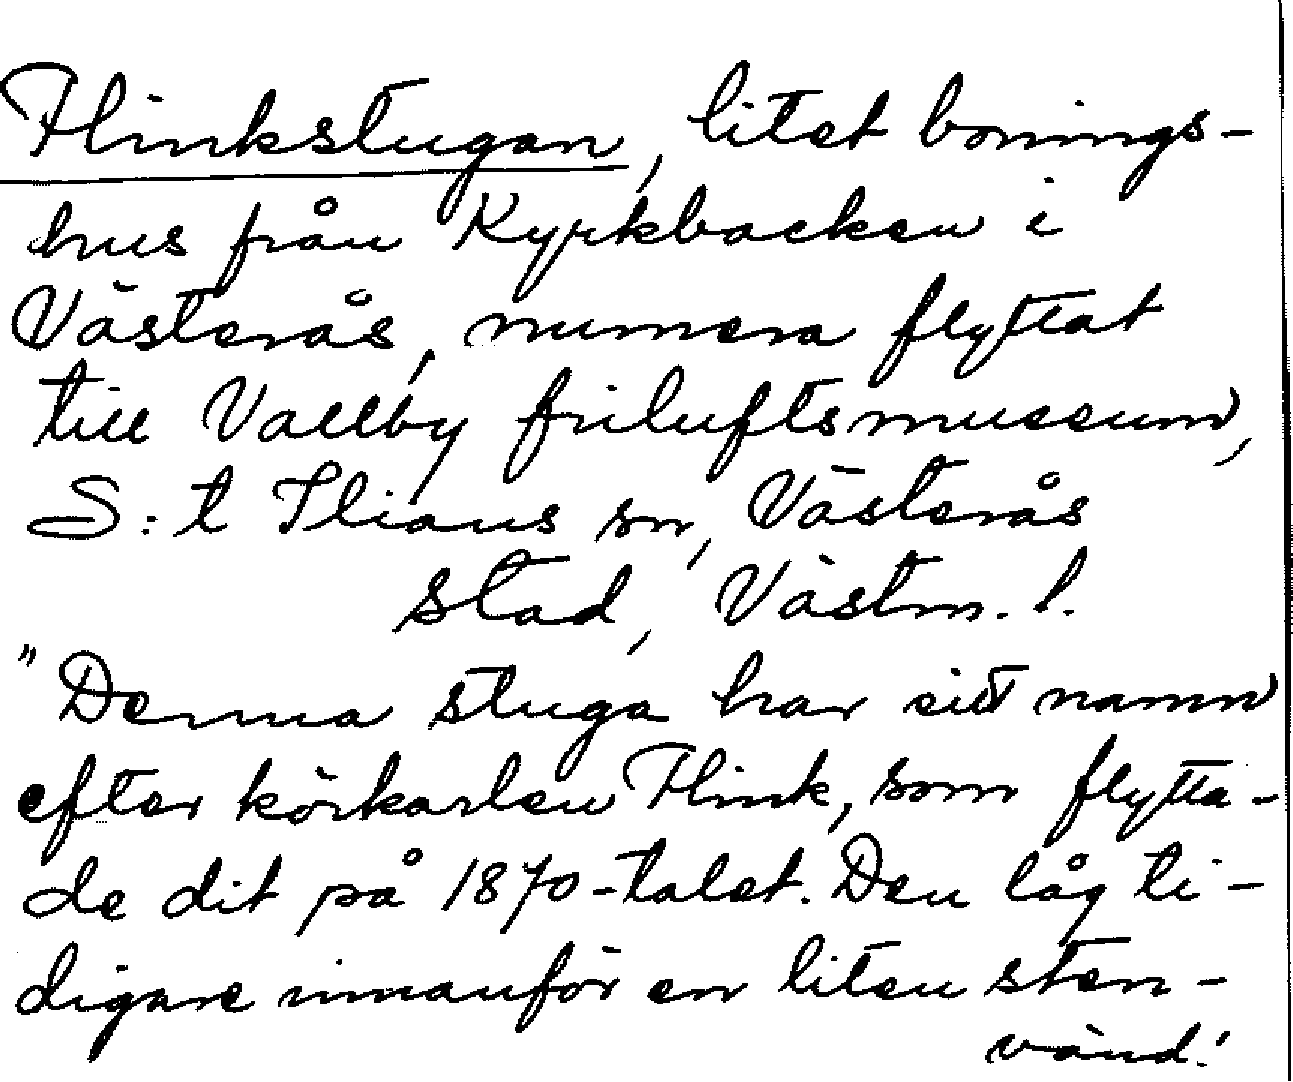 Flinkstugan, litet bonings-
hus från Kyrkbacken i
Västerås, numera flyttat
till Vallby friluftsmuseum,
S:t Ilians sn, Västerås
stad, Västm. l.
"Denna stuga har sitt namn
efter körkarlen Flink, som flytta-
de dit på 1870-talet. Den låg ti-
digare innanför en liten sten-
vänd!